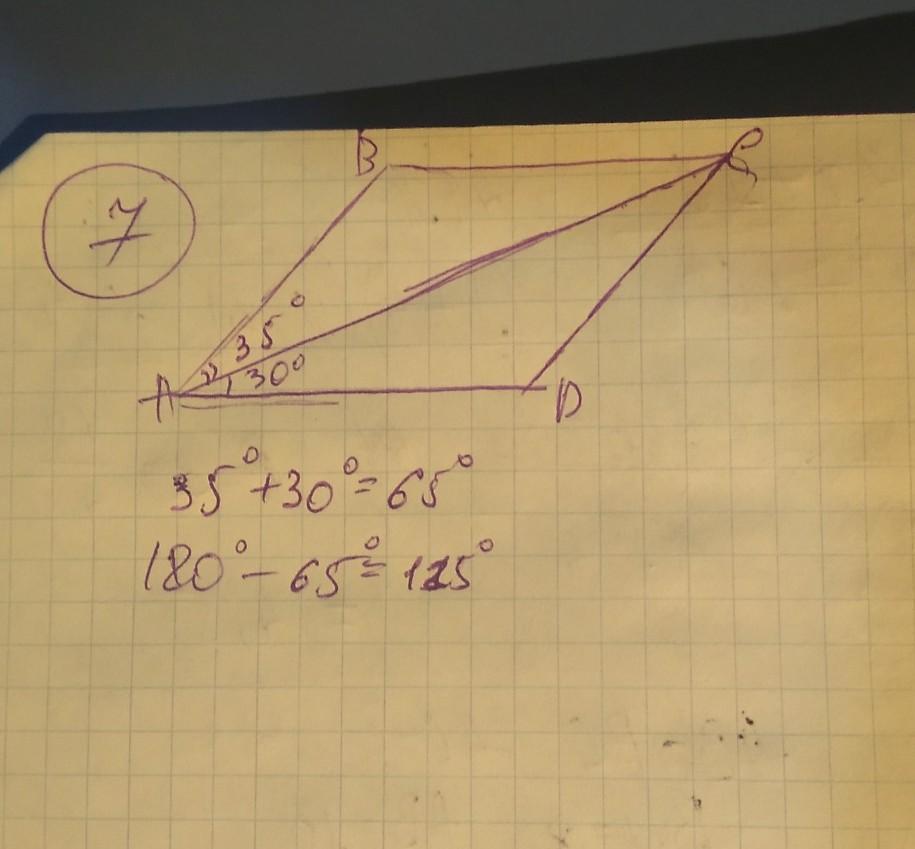 7
B C
35°
30°
A D
35°+30°=65°
180°-65°=115°